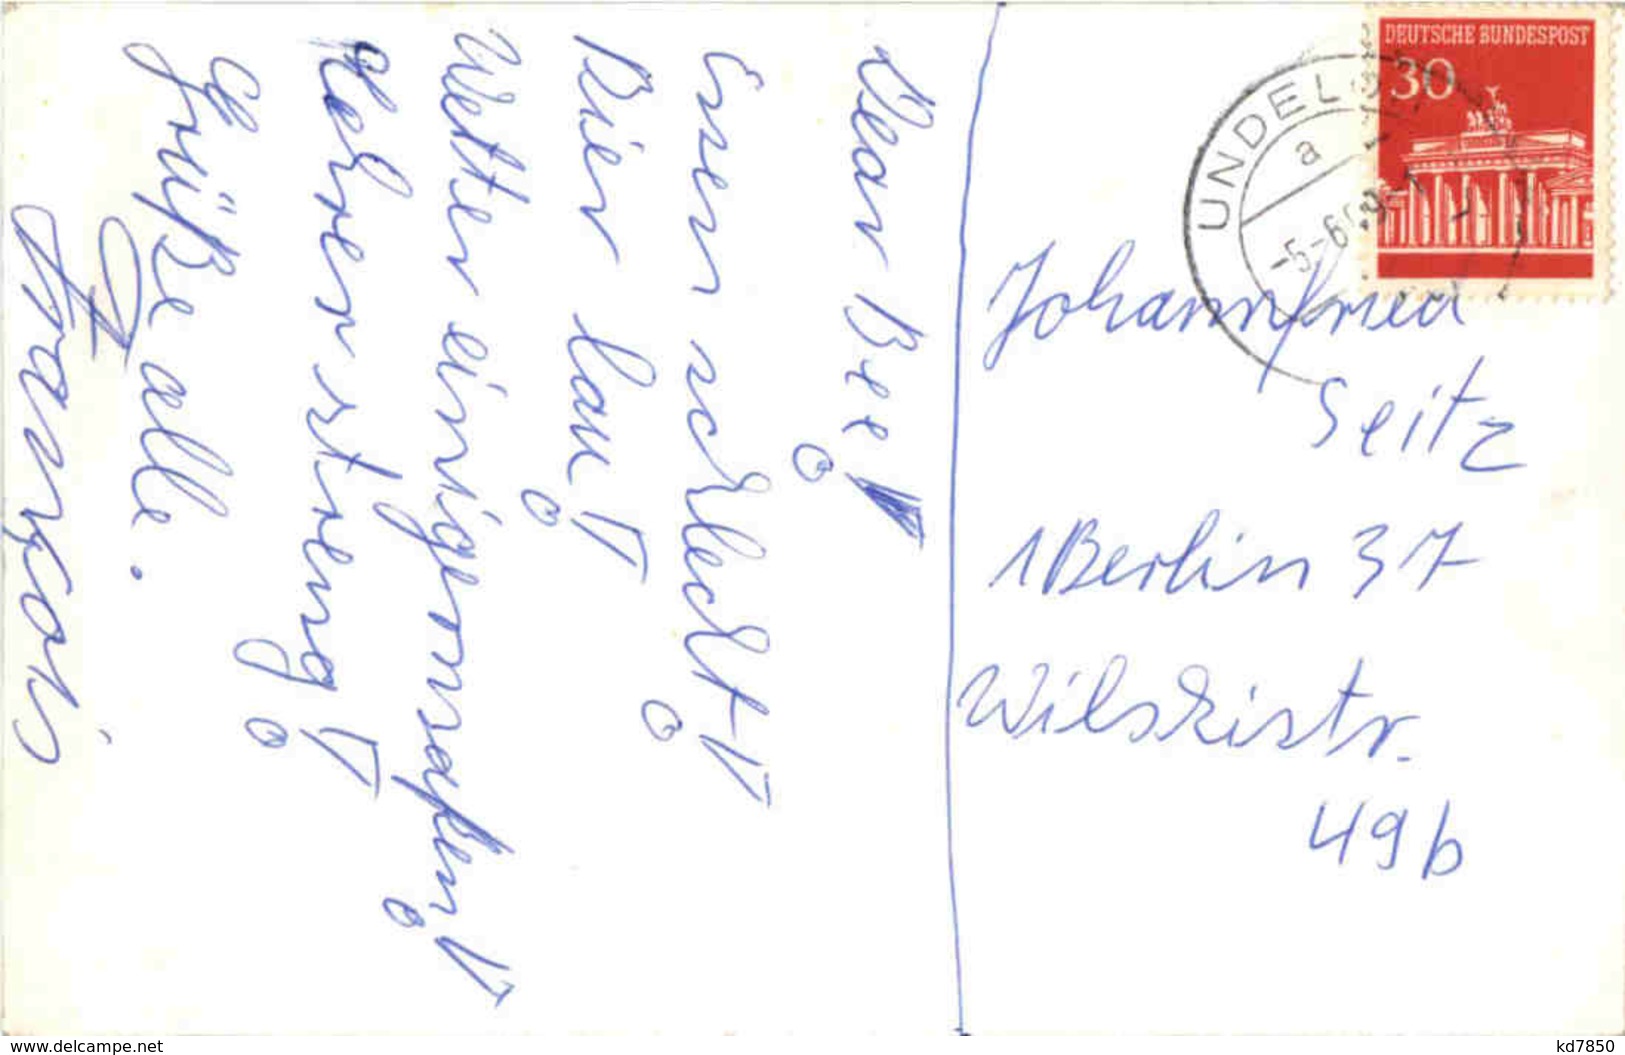 Dear Bee!
Essen schlecht!
Bier lau!
Wetter einigermaßen!
Lehrer streng!
Grüße alle.
François
DEUTSCHE BUNDESPOST
30
UNDELOH
a
-5.-6.69-
Johannfried
Seitz
1 Berlin 37
Wilskistr.
49b
www.delcampe.net
kd7850